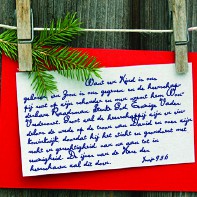 Want een Kind is ons
geboren, een Zoon is ons gegeven en de heerschappij
rust op zijn schouder en men noemt hem Won-
derbare Raadsman Sterke God Eeuwige Vader
Vredevorst. Groot zal de heerschappij zijn en ein
deloos de vrede op de troon van David en over zijn
koninkrijk doordat hij het sticht en grondvest met
recht en gerechtigheid van nu aan tot in
eeuwigheid. De ijver van de Here der
heerscharen zal dit doen.
9:5,6